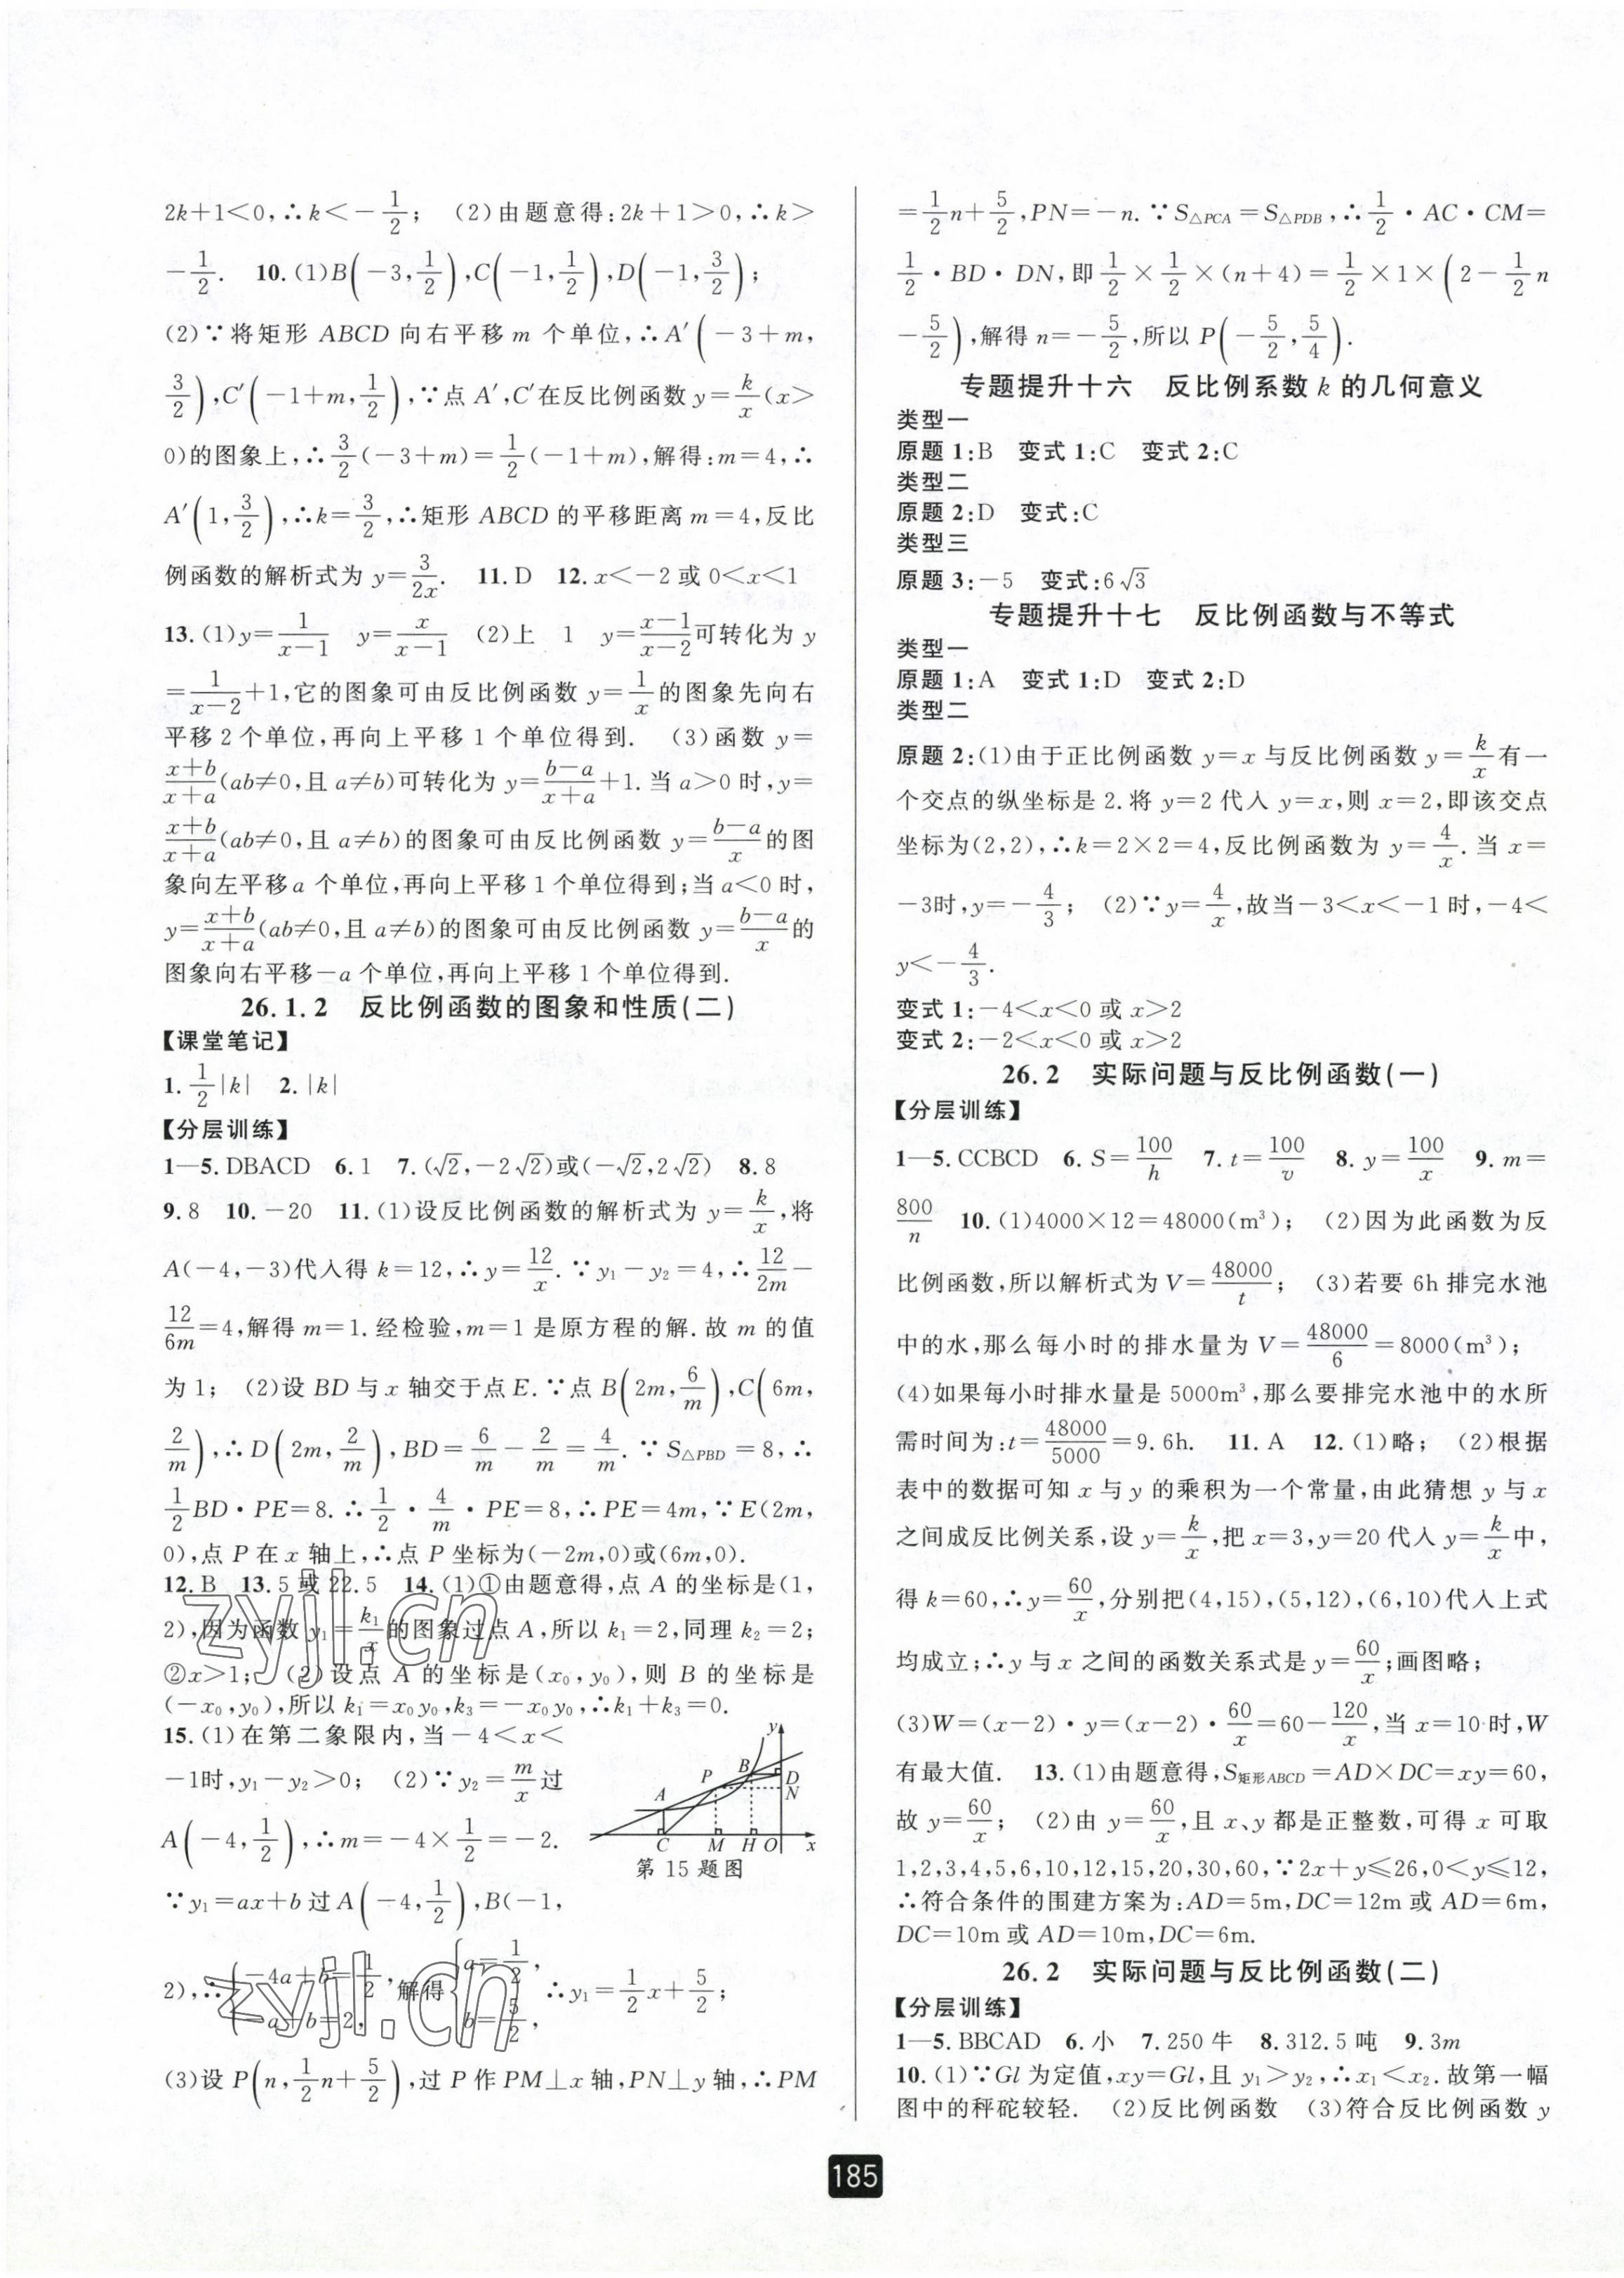 2k+1<0,∴k<-1/2; (2)由题意得:2k+1>0,∴k>
-1/2. 10.(1)B(-3,1/2),C(-1,1/2),D(-1,3/2);
(2)∵将矩形 ABCD 向右平移 m 个单位,∴A′(-3+m,
3/2),C′(-1+m,1/2),∵点 A′,C′在反比例函数 y=k/x(x>
0)的图象上,∴3/2(-3+m)=1/2(-1+m),解得:m=4,∴
A′(1,3/2),∴k=3/2,∴矩形 ABCD 的平移距离 m=4,反比
例函数的解析式为 y=3/2x. 11.D 12.x<-2 或 0<x<1
13.(1)y=1/(x-1) y=x/(x-1) (2)上 1 y=(x-1)/(x-2)可转化为 y
=1/(x-2)+1,它的图象可由反比例函数 y=1/x的图象先向右
平移 2 个单位,再向上平移 1 个单位得到. (3)函数 y=
(x+b)/(x+a)(ab≠0,且 a≠b)可转化为 y=(b-a)/(x+a)+1.当 a>0 时,y=
(x+b)/(x+a)(ab≠0,且 a≠b)的图象可由反比例函数 y=(b-a)/x的图
象向左平移 a 个单位,再向上平移 1 个单位得到;当 a<0 时,
y=(x+b)/(x+a)(ab≠0,且 a≠b)的图象可由反比例函数 y=(b-a)/x的
图象向右平移-a 个单位,再向上平移 1 个单位得到.
26.1.2 反比例函数的图象和性质(二)
【课堂笔记】
1.1/2|k| 2.|k|
【分层训练】
1—5.DBACD 6.1 7.(√2,-2√2)或(-√2,2√2) 8.8
9.8 10.-20 11.(1)设反比例函数的解析式为 y=k/x,将
A(-4,-3)代入得 k=12,∴y=12/x.∵y₁-y₂=4,∴12/2m-
12/6m=4,解得 m=1.经检验,m=1 是原方程的解.故 m 的值
为 1; (2)设 BD 与 x 轴交于点 E.∵点 B(2m,6/m),C(6m,
2/m),∴D(2m,2/m),BD=6/m-2/m=4/m.∵S△PBD=8,∴
1/2BD·PE=8.∴1/2·4/m·PE=8,∴PE=4m,∵E(2m,
0),点 P 在 x 轴上,∴点 P 坐标为(-2m,0)或(6m,0).
12.B 13.5 或 22.5 14.(1)①由题意得,点 A 的坐标是(1,
2),因为函数 y₁=k₁/x的图象过点 A,所以 k₁=2,同理 k₂=2;
②x>1; (2)设点 A 的坐标是(x₀,y₀),则 B 的坐标是
(-x₀,y₀),所以 k₁=x₀y₀,k₃=-x₀y₀,∴k₁+k₃=0.
15.(1)在第二象限内,当-4<x<
-1时,y₁-y₂>0; (2)∵y₂=m/x过
A(-4,1/2),∴m=-4×1/2=-2.
∵y₁=ax+b 过 A(-4,1/2),B(-1,
y
B
P
D
N
A
C M H O x
第 15 题图
2),∴{-4a+b=1/2, -a+b=2, 解得{a=1/2, b=5/2, ∴y₁=1/2x+5/2;
(3)设 P(n,1/2n+5/2),过 P 作 PM⊥x 轴,PN⊥y 轴,∴PM
zyjl.cn
zyjl.cn
=1/2n+5/2,PN=-n.∵S△PCA=S△PDB,∴1/2·AC·CM=
1/2·BD·DN,即1/2×1/2×(n+4)=1/2×1×(2-1/2n
-5/2),解得 n=-5/2,所以 P(-5/2,5/4).
专题提升十六 反比例系数 k 的几何意义
类型一
原题 1:B 变式 1:C 变式 2:C
类型二
原题 2:D 变式:C
类型三
原题 3:-5 变式:6√3
专题提升十七 反比例函数与不等式
类型一
原题 1:A 变式 1:D 变式 2:D
类型二
原题 2:(1)由于正比例函数 y=x 与反比例函数 y=k/x有一
个交点的纵坐标是 2.将 y=2 代入 y=x,则 x=2,即该交点
坐标为(2,2),∴k=2×2=4,反比例函数为 y=4/x.当 x=
-3时,y=-4/3; (2)∵y=4/x,故当-3<x<-1 时,-4<
y<-4/3.
变式 1:-4<x<0 或 x>2
变式 2:-2<x<0 或 x>2
26.2 实际问题与反比例函数(一)
【分层训练】
1—5.CCBCD 6.S=100/h 7.t=100/v 8.y=100/x 9.m=
800/n 10.(1)4000×12=48000(m³); (2)因为此函数为反
比例函数,所以解析式为 V=48000/t; (3)若要 6h 排完水池
中的水,那么每小时的排水量为 V=48000/6=8000(m³);
(4)如果每小时排水量是 5000m³,那么要排完水池中的水所
需时间为:t=48000/5000=9.6h. 11.A 12.(1)略; (2)根据
表中的数据可知 x 与 y 的乘积为一个常量,由此猜想 y 与 x
之间成反比例关系,设 y=k/x,把 x=3,y=20 代入 y=k/x中,
得 k=60,∴y=60/x,分别把(4,15),(5,12),(6,10)代入上式
均成立;∴y 与 x 之间的函数关系式是 y=60/x;画图略;
(3)W=(x-2)·y=(x-2)·60/x=60-120/x,当 x=10 时,W
有最大值. 13.(1)由题意得,S矩形ABCD=AD×DC=xy=60,
故 y=60/x; (2)由 y=60/x,且 x、y 都是正整数,可得 x 可取
1,2,3,4,5,6,10,12,15,20,30,60,∵2x+y≤26,0<y≤12,
∴符合条件的围建方案为:AD=5m,DC=12m 或 AD=6m,
DC=10m 或 AD=10m,DC=6m.
26.2 实际问题与反比例函数(二)
【分层训练】
1—5.BBCAD 6.小 7.250 牛 8.312.5 吨 9.3m
10.(1)∵Gl 为定值,xy=Gl,且 y₁>y₂,∴x₁<x₂.故第一幅
图中的秤砣较轻. (2)反比例函数 (3)符合反比例函数 y
185